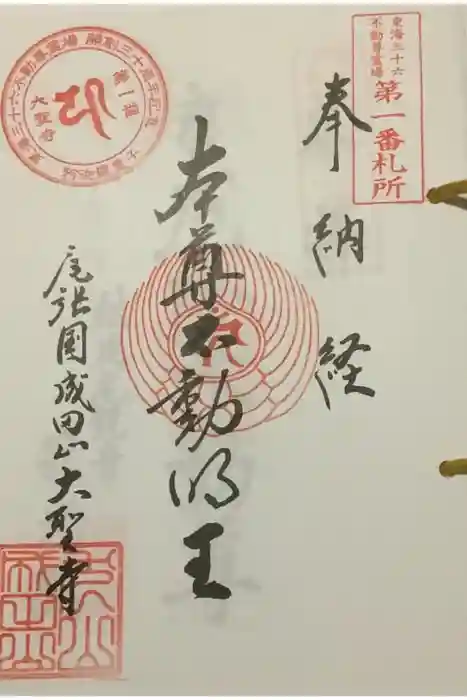 東海三十六
不動尊霊場
第一番札所
奉納経
本尊不動明王
尾張國成田山大聖寺
第一番
大聖寺